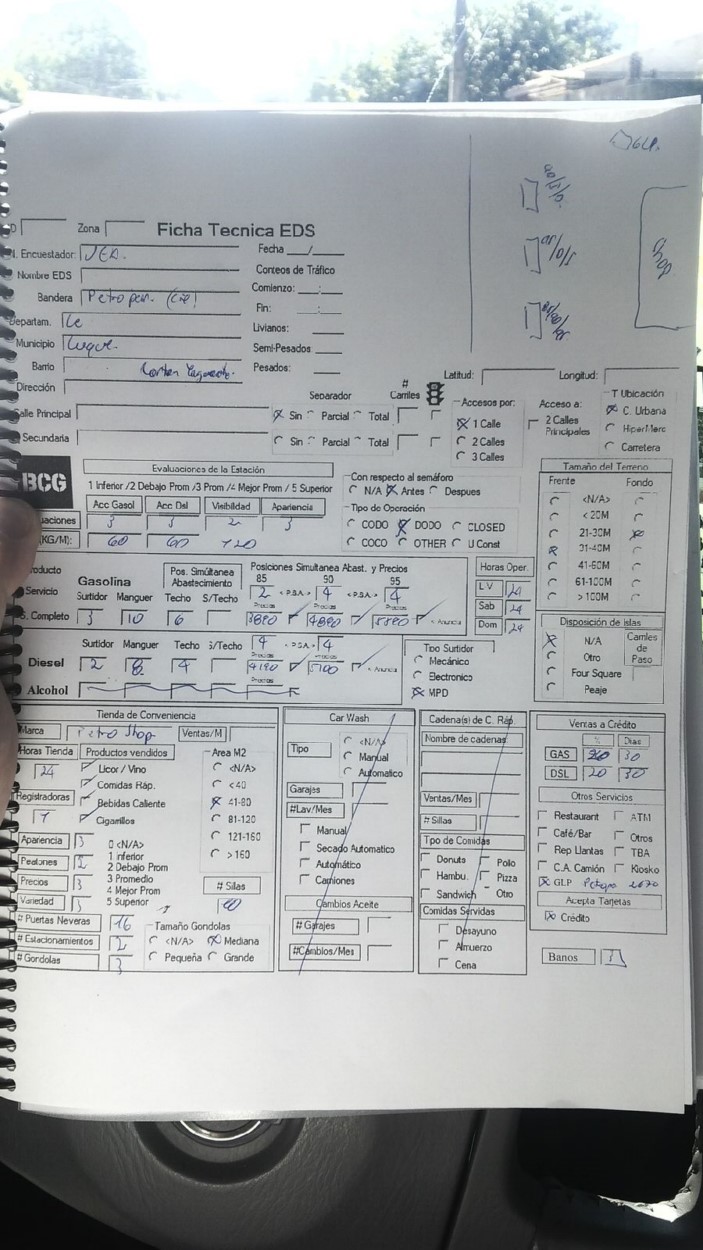 GLP.
ID Zona Ficha Tecnica EDS
N. Encuestador: Fecha / /
Nombre EDS Conteos de Tráfico
Bandera Petropar. Comienzo: :
Departam. Fin: :
Municipio Luque. Livianos:
Barrio Semi-Pesados
Dirección Pesados:
Latitud: Longitud:
Calle Principal Separador # Carriles
Sin Parcial Total
Secundaria Sin Parcial Total
Accesos por:
1 Calle
2 Calles
3 Calles
Acceso a:
2 Calles Principales
T Ubicación
C. Urbana
HiperMerc
Carretera
BCG
Evaluaciones de la Estación
1 Inferior /2 Debajo Prom /3 Prom /4 Mejor Prom / 5 Superior
Acc Gasol Acc Dsl Visibilidad Apariencia
uaciones 3 3 2 3
(KG/M): 60 60 120
Con respecto al semáforo
N/A Antes Despues
Tipo de Operación
CODO DODO CLOSED
COCO OTHER U Const
Tamaño del Terreno
Frente Fondo
<N/A>
< 20M
21-30M
31-40M
41-60M
61-100M
> 100M
Producto Servicio
Gasolina
Pos. Simúltanea Abastecimiento
Posiciones Simultanea Abast. y Precios
85 90 95
Surtidor Manguer Techo S/Techo 2 < P.S.A.> 4 < P.S.A.> 4
Precios Precios Precios
S. Completo 3 10 6 3890 4890 5890 < Anuncia
Horas Oper.
L V 24
Sab 24
Dom 24
Surtidor Manguer Techo S/Techo 4 < P.S.A.> 4
Precios Precios
Diesel 2 8 4 4190 5100 < Anuncia
Alcohol
Tipo Surtidor
Mecánico
Electronico
MPD
Disposición de Islas
N/A
Otro
Four Square
Peaje
Carriles de Paso
Tienda de Conveniencia
Marca Petro Stop Ventas/M
Horas Tienda 24
Productos vendidos
Licor / Vino
Comidas Ráp.
Bebidas Caliente
Cigarillos
Area M2
<N/A>
< 40
41-80
81-120
121-160
> 160
Registradoras 1
Apariencia 3
Peatones 2
Precios 3
Variedad 3
0 <N/A>
1 Inferior
2 Debajo Prom
3 Promedio
4 Mejor Prom
5 Superior
# Sillas
# Puertas Neveras 16
# Estacionamientos 2
# Gondolas 3
Tamaño Gondolas
<N/A> Mediana
Pequeña Grande
Car Wash
Tipo
<N/A>
Manual
Automatico
Garajes
#Lav/Mes
Manual
Secado Automatico
Automático
Camiones
Cambios Aceite
# Garajes
#Cambios/Mes
Cadena(s) de C. Ráp.
Nombre de cadenas
Ventas/Mes
# Sillas
Tipo de Comidas
Donuts Pollo
Hambu. Pizza
Sandwich Otro
Comidas Servidas
Desayuno
Almuerzo
Cena
Ventas a Crédito
% Dias
GAS 30
DSL 20 30
Otros Servicios
Restaurant ATM
Café/Bar Otros
Rep Llantas TBA
C.A. Camión Kiosko
GLP
Acepta Tarjetas
Crédito
Banos